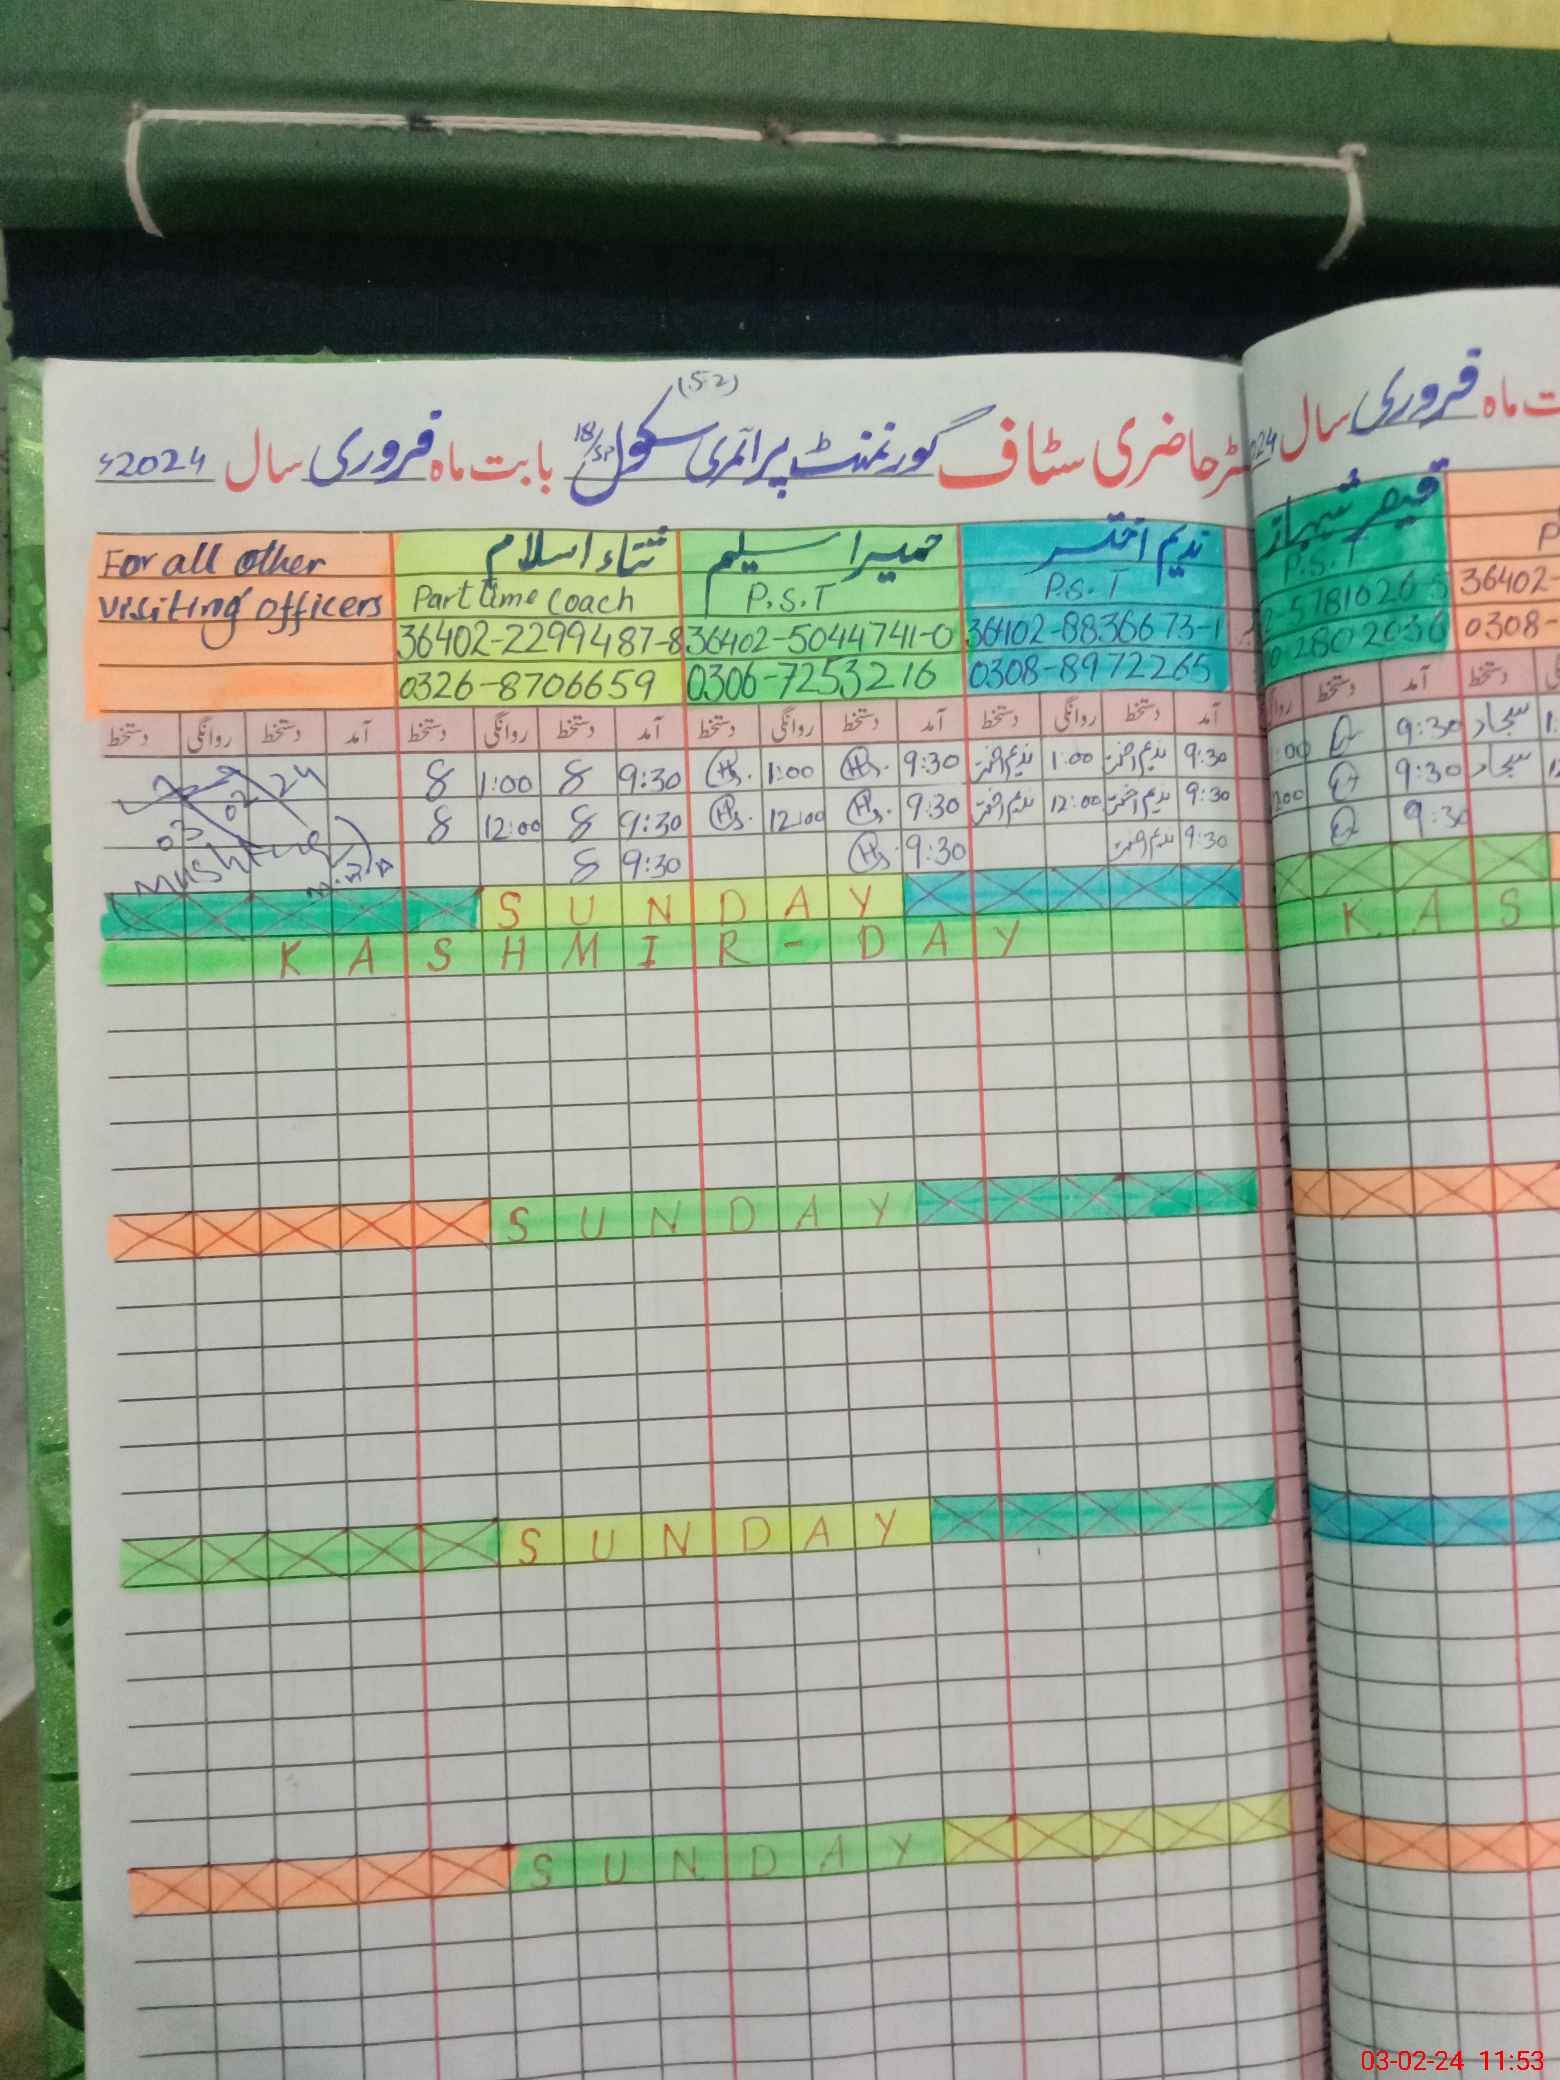 (52)
رجسٹر حاضری سٹاف گورنمنٹ پرائمری سکول 18/SP بابت ماہ فروری سال 2024ء
ت ماہ فروری سال 2024
For all other visiting officers
ثناء اسلام
Part time Coach
36402-2299487-8
0326-8706659
حمیرا سلیم
P.S.T
36402-5044741-0
0306-7253216
ندیم اختر
P.S.T
36402-8836673-1
0308-8972265
قیصر شہباز
P.S.T
2-5781026-5
02802036
P
36402-
0308-
آمد دستخط روانگی دستخط آمد دستخط روانگی دستخط آمد دستخط روانگی دستخط آمد دستخط روانگی دستخط
9:30 ندیم اختر 1:00 ندیم اختر 9:30 Hs. 1:00 Hs. 9:30 8 1:00 8
9:30 ندیم اختر 12:00 ندیم اختر 9:30 Hs. 12:00 Hs. 9:30 8 12:00 8
9:30 ندیم اختر 9:30 Hs. 9:30 8
03 02 24
SUNDAY
KASHMIR-DAY
SUNDAY
SUNDAY
SUNDAY
دستخط آمد دستخط
سجاد 9:30 1:00
سجاد 9:30 200
9:30
KAS
03-02-24 11:53